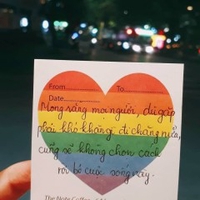 From To
Date
Mong rằng mọi người, dù gặp
phải khó khăn gì đi chăng nữa,
cũng sẽ không chọn cách
rời bỏ cuộc sống này.
The Note Coffee